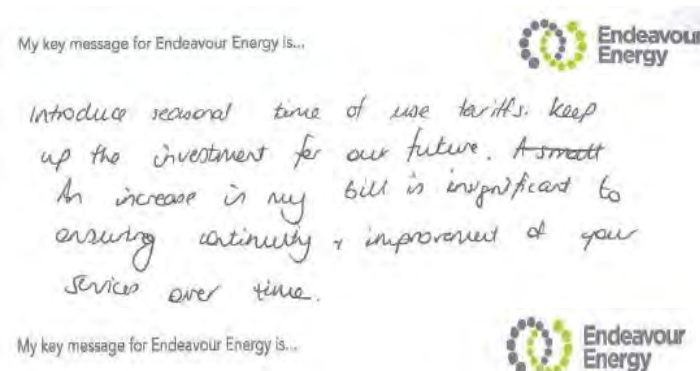 My key message for Endeavour Energy is...
Endeavour
Energy
Introduce seasonal time of use tariffs. Keep
up the investment for our future. A small
An increase in my bill is insignificant to
ensuring continuity + improvement of your
services over time.
My key message for Endeavour Energy is...
Endeavour
Energy